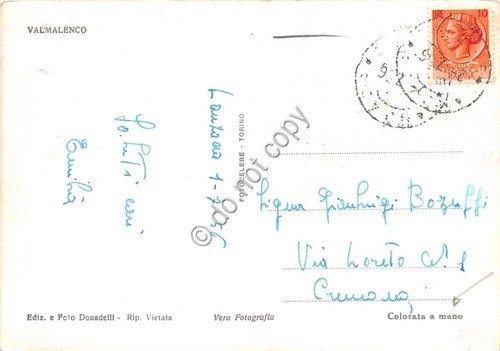 VALMALENCO
10
Lanzada 1-7-56
Saluti cari
Emilia
FOTOCELERE - TORINO
do not copy
Signor Gianluigi Bozuffi
Via Loreto N° 1
Cremona
Ediz. e Foto Donadelli - Rip. Vietata
Vera Fotografia
Colorata a mano